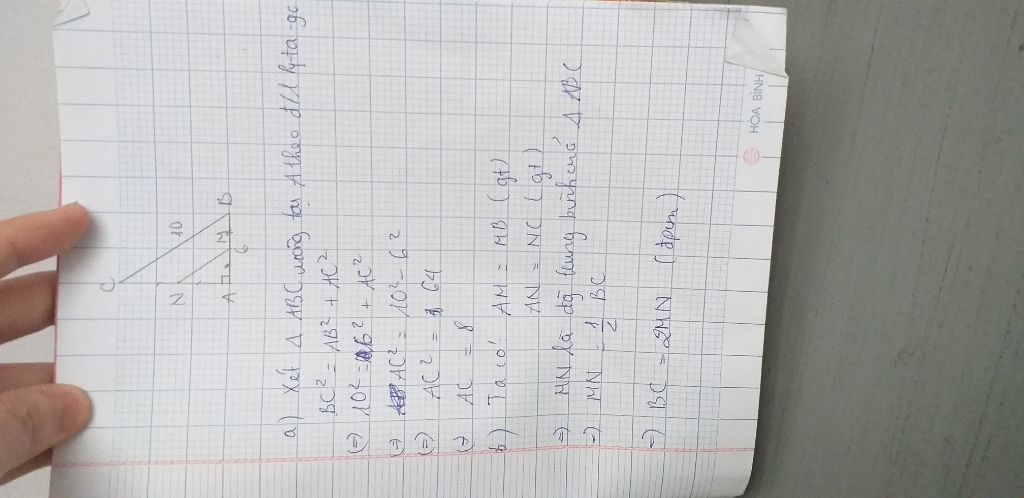 C
10
N
M
A
6
B
a) Xét Δ ABC vuông tại A theo đ/l Py-ta-go
BC² = AB² + AC²
(=) 10² = 6² + AC²
(=) AC² = 10² - 6²
(=) AC² = 64
(=) AC = 8
b) Ta có: AM = MB (gt)
AN = NC (gt)
=) MN là đg trung bình của Δ ABC
=) MN = 1/2 BC
=) BC = 2MN (đpcm)
HÒA BÌNH